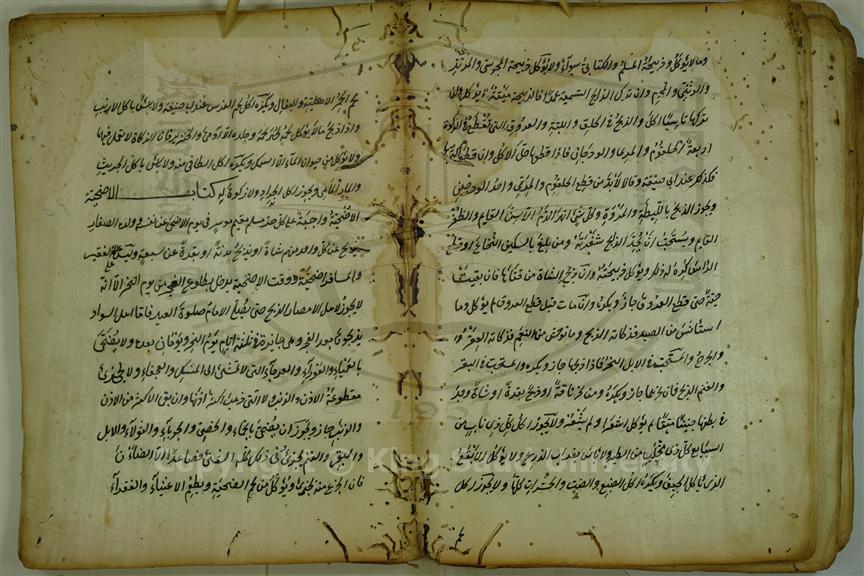 وما لا يؤكل وذبيحة المسلم والكتابي سواء ولا يؤكل ذبيحة المجوسي والمرتد
والوثني والمحرم وان ترك الذابح التسمية عمدا فالذبيحة ميتة لا يؤكل وان
تركها ناسيا اكل والذبح في الحلق واللبة والعروق التي تقطع في الزكوة
اربعة الحلقوم والمرى والودجان فاذا قطعها حل الاكل وان قطع اكثرها
فكذلك عند ابي حنيفة وقالا لابد من قطع الحلقوم والمرى واحد الودجين
ويجوز الذبح بالليطة والمروة وكل شئ انهر الدم الا السن القايم والظفر
القايم ويستحب ان يحد الذابح شفرته ومن بلغ بالسكين النخاع او قطع
الرأس كره له ذلك ويؤكل ذبيحته وان ذبح الشاة من قفاها فان بقيت
حية حتى قطع العروق جاز ويكره وان ماتت قبل قطع العروق لم يؤكل وما
استأنس من الصيد فذكاته الذبح وما توحش من النعم فذكاته العقر
والجرح والمستحب في الابل النحر فاذا ذبحها جاز ويكره والمستحب في البقر
والغنم الذبح فان نحرهما جاز ويكره ومن نحر ناقة او ذبح بقرة او شاة فوجد
في بطنها جنينا ميتا لم يؤكل اشعر او لم يشعر ولا يجوز اكل كل ذي ناب من
السباع وكل ذي مخلب من الطير ولا بأس بغراب الزرع ولا يؤكل الابقع
الذي يأكل الجيف ويكره اكل الضبع والضب والحشرات كلها ولا يجوز اكل
لحم الحمر الاهلية والبغال ويكره اكل لحم الفرس عند ابي حنيفة ولا بأس باكل الارنب
واذا ذبح ما لا يؤكل لحمه طهر لحمه وجلده الا الادمي والخنزير فان الذكاة لا تعمل فيها
ولا يؤكل من حيوان الماء الا السمك ويكره اكل الطافي منه ولا بأس باكل الجريث
والمارماهي ويجوز اكل الجراد ولا زكوة له كتاب الاضحية
الاضحية واجبة على كل حر مسلم مقيم موسر في يوم الاضحى عن نفسه وولده الصغار
يذبح عن كل واحد منهم شاة او يذبح بدنة او بقرة عن سبعة وليس على الفقير
والمسافر اضحية ووقت الاضحية يدخل بطلوع الفجر من يوم النحر الا انه
لا يجوز لاهل الامصار الذبح حتى يصلي الامام صلوة العيد فاما اهل السواد
يذبحون بعد الفجر وهي جائزة في ثلثة ايام يوم النحر ويومان بعده ولا يضحى
بالعمياء والعوراء والعرجاء التي لا تمشي الى المنسك والعجفاء ولا يجزئ
مقطوعة الاذن والذنب ولا التي ذهب اكثر اذنها وان بقي الاكثر من الاذن
والذنب جاز ويجوز ان يضحى بالجماء والخصي والجرباء والثولاء والابل
والبقر والغنم يجزئ في ذلك كله الثني فصاعدا الا الضأن
فان الجذع منه يجزئ ويؤكل من لحم الضحية ويطعم الاغنياء والفقراء
Copyright © King Saud University
1957